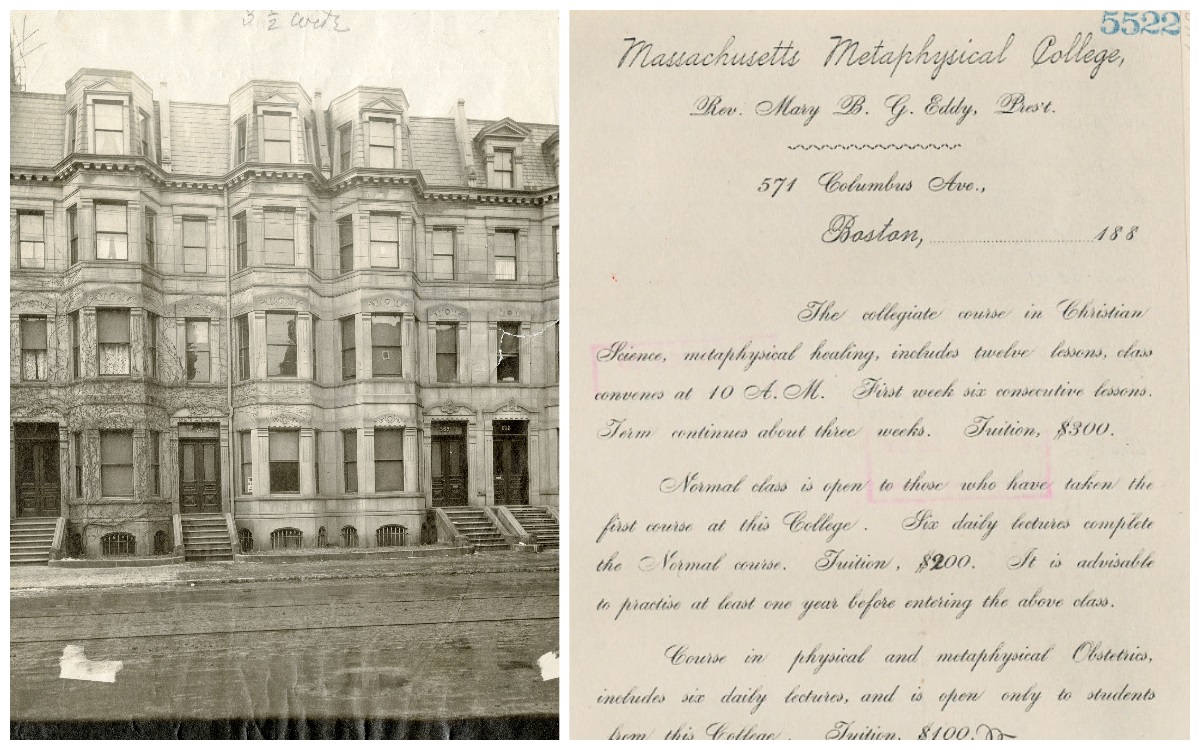 3 ½ inch
5522
Massachusetts Metaphysical College,
Rev. Mary B. G. Eddy, Pres't.
571 Columbus Ave.,
Boston,..............................188
The collegiate course in Christian
Science, metaphysical healing, includes twelve lessons, class
convenes at 10 A.M. First week six consecutive lessons.
Term continues about three weeks. Tuition, $300.
Normal class is open to those who have taken the
first course at this College. Six daily lectures complete
the Normal course. Tuition, $200. It is advisable
to practise at least one year before entering the above class.
Course in physical and metaphysical Obstetrics,
includes six daily lectures, and is open only to students
from this College. Tuition, $100.